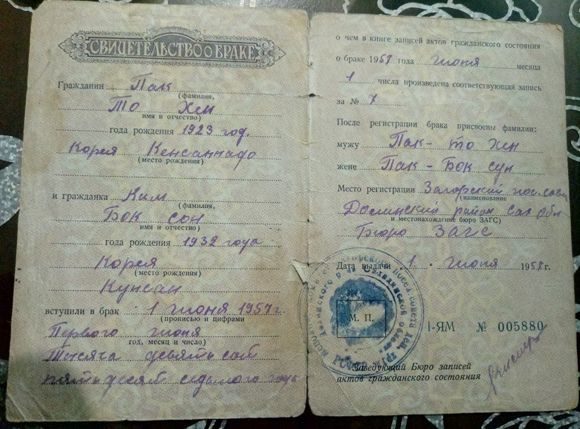 СВИДЕТЕЛЬСТВО О БРАКЕ
Гражданин Пак
(фамилия,
То Хен
имя и отчество)
года рождения 1923 год.
Корея Кенсаннадо
(место рождения)
и гражданка Ким
(фамилия,
Бок Сон
имя и отчество)
года рождения 1932 года
Корея
(место рождения)
Кунсан
вступили в брак 1 июня 1957 г.
(прописью и цифрами
Первого июня
год, месяц и число)
Тысяча девятьсот
пятьдесят седьмого года
о чем в книге записей актов гражданского состояния
о браке 1957 года июня месяца
1 числа произведена соответствующая запись
за № 7
После регистрации брака присвоены фамилии:
мужу Пак-то хин
жене Пак-Бок сун
Место регистрации Загорский пос. сов.
(наименование
Долинский район Сах обл
и местонахождение бюро ЗАГС)
Бюро ЗАГС
Дата выдачи 1 июня 1957 г.
М. П.
I-ЯМ № 005880
Заведующий Бюро записей
актов гражданского состояния